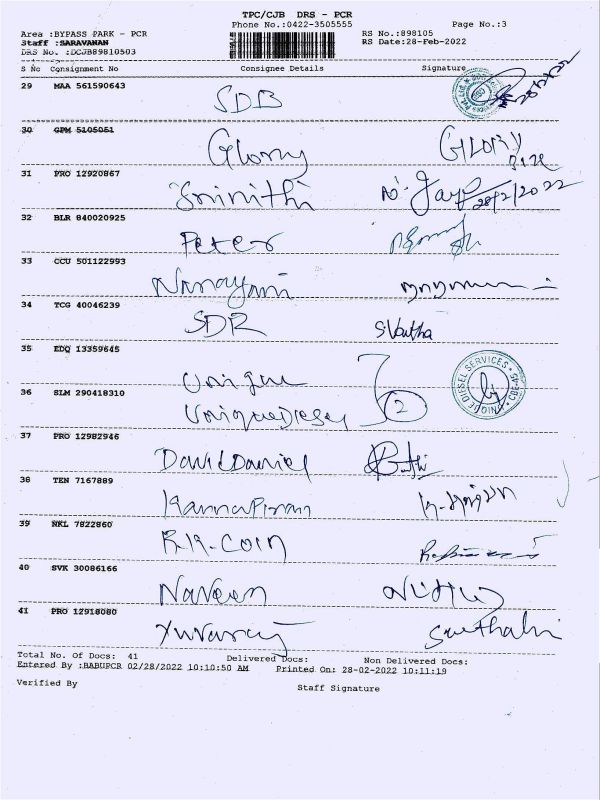 TPC/CJB DRS - PCR
Phone No.:0422-3505555
Page No.:3
Area :BYPASS PARK - PCR
RS No.:898105
Staff :SARAVANAN
RS Date:28-Feb-2022
DRS No. :DCJB89810503
S No Consignment No Consignee Details Signature
29 MAA 561590643
SDB
30 GPM 5105051
Glory GLORY
31 PRO 12920867
Srinithi 28/2/2022
32 BLR 840020925
Peter
33 CCU 501122993
Narayani
34 TCG 40046239
SDR
35 EDQ 13359645
Unique 2
UNIQUE DIESEL SERVICES * CBE-45 *
36 SLM 290418310
Unique Diesel
37 PRO 12982946
David Daniel
38 TEN 7167889
39 NKL 7822860
R.K. COIN
40 SVK 30086166
Naveen
41 PRO 12918080
Yuvaraj
Total No. of Docs: 41 Delivered Docs: Non Delivered Docs:
Entered By :BABUPCR 02/28/2022 10:10:50 AM Printed On: 28-02-2022 10:11:19
Verified By
Staff Signature